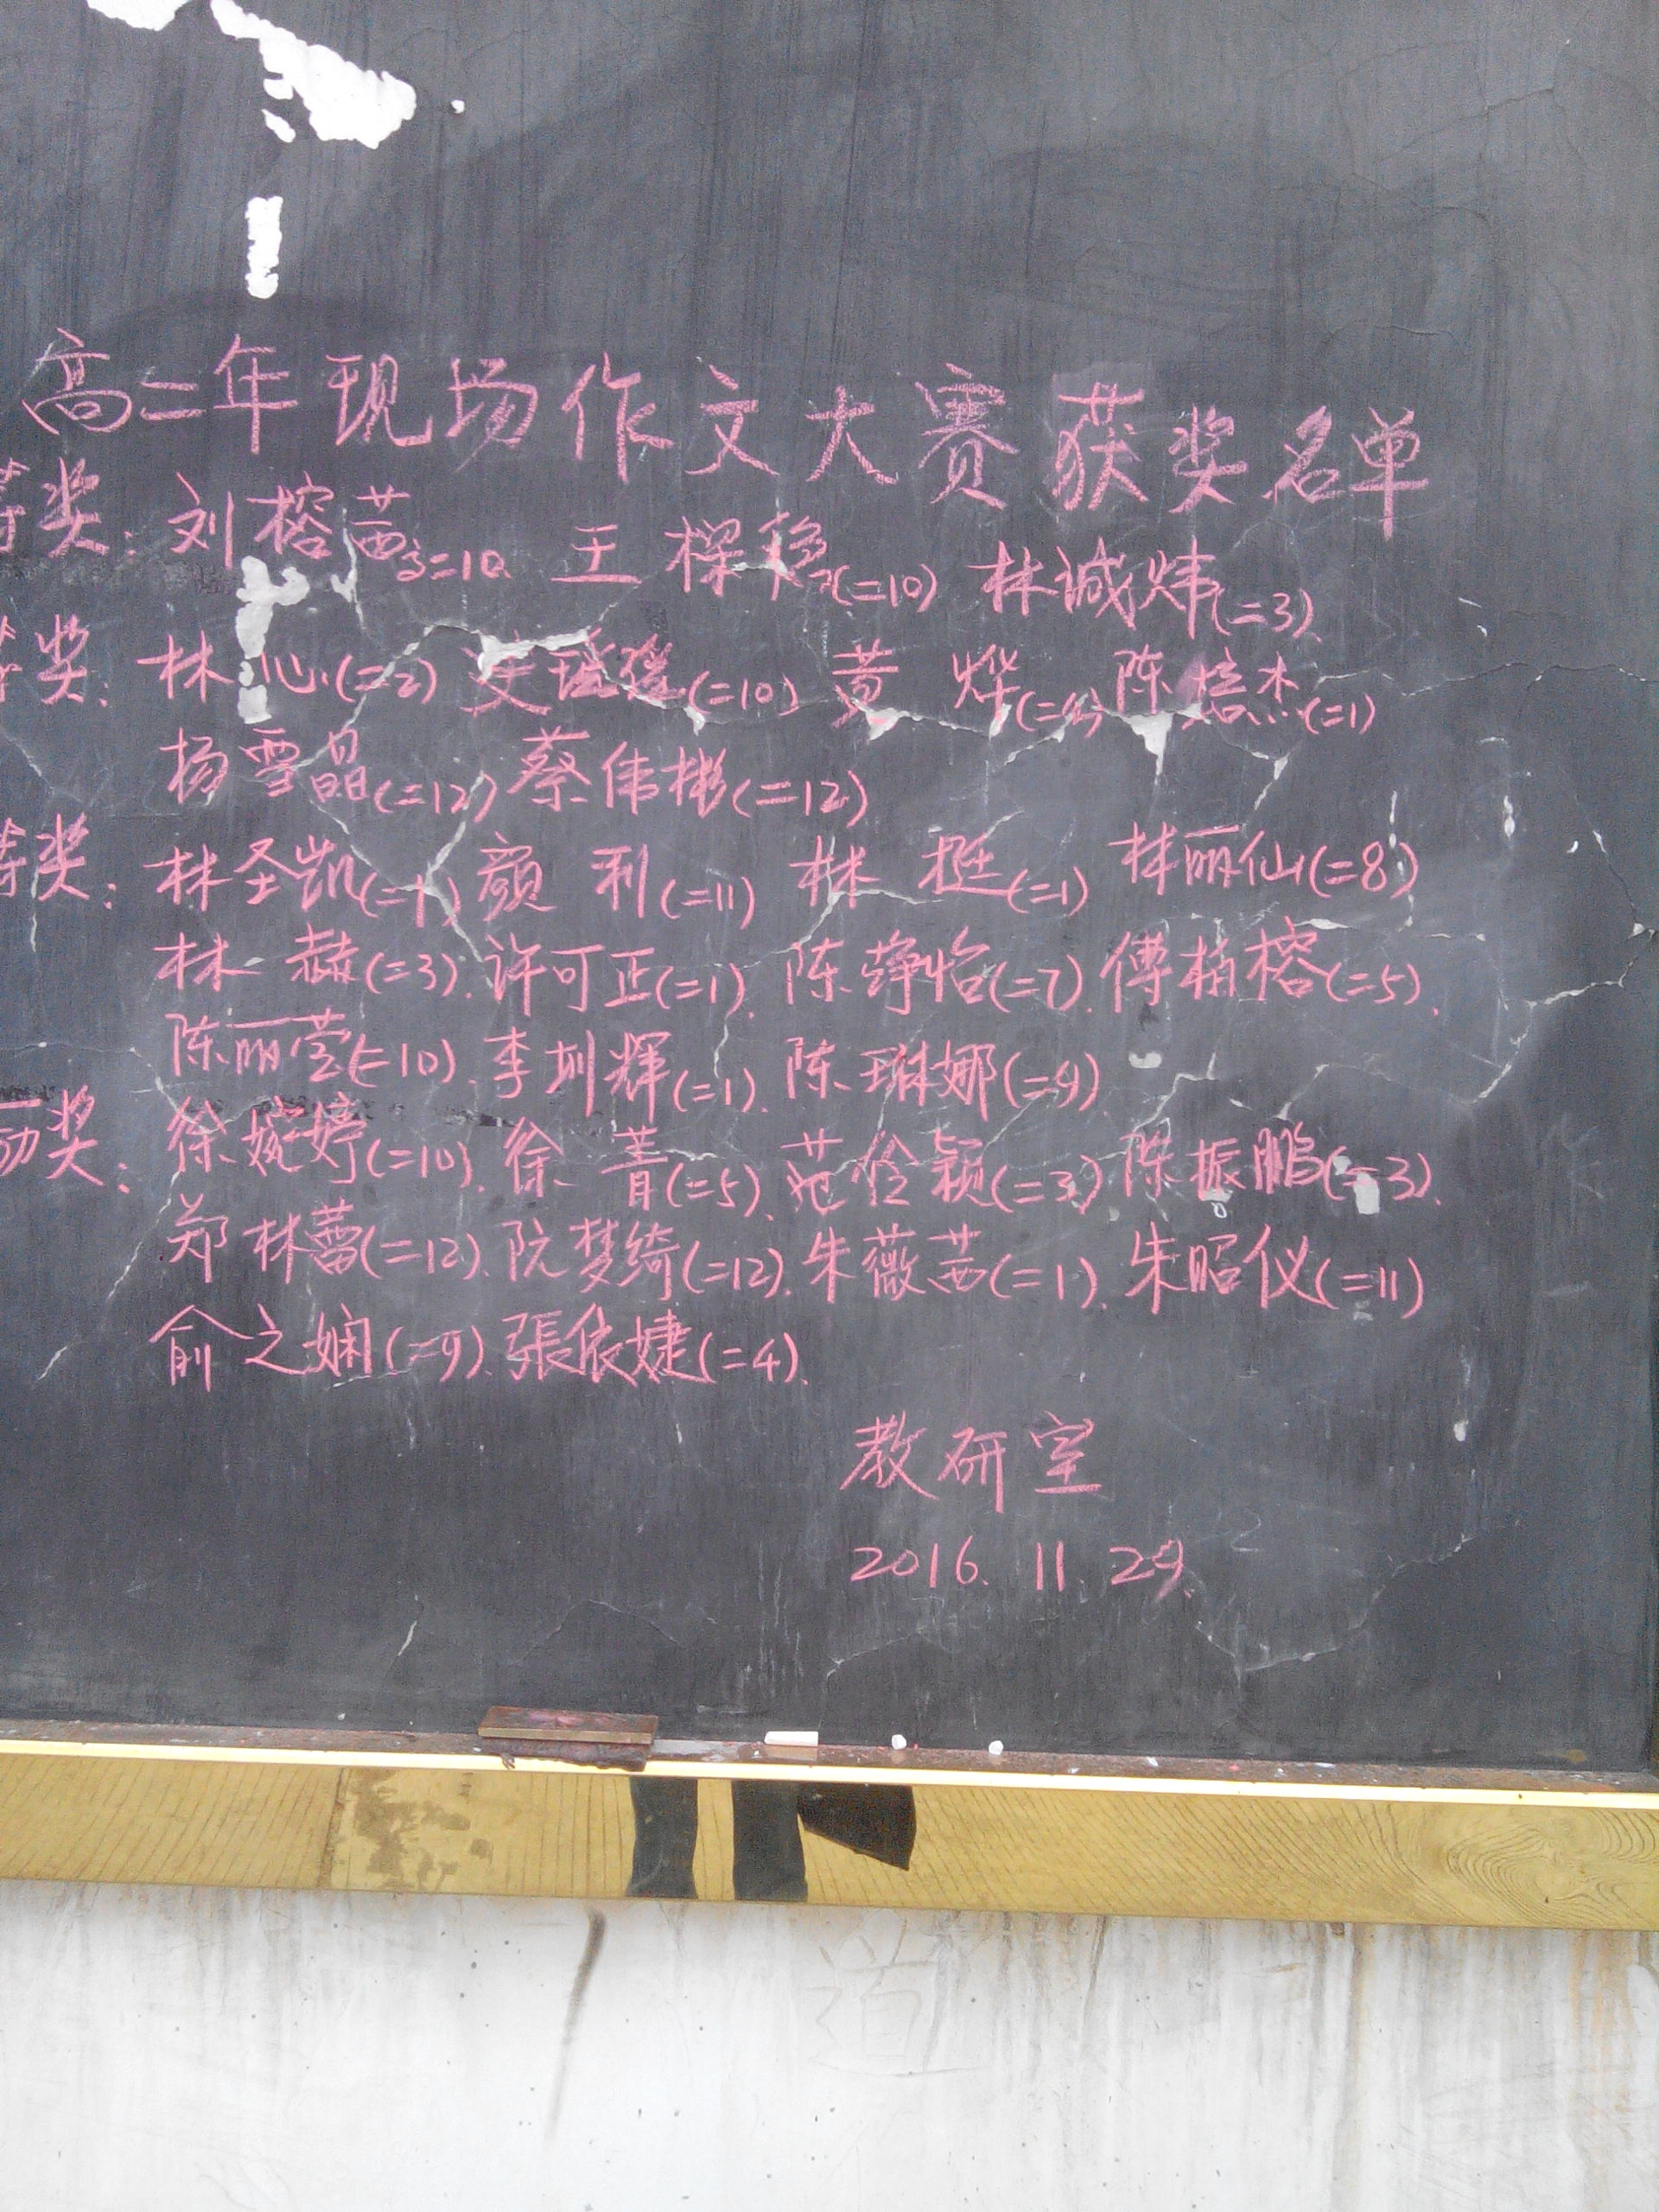 高二年现场作文大赛获奖名单
等奖：刘榕茜 二10 王 (二10) 林诚炜(二3)
等奖：林心(二2) (二10) 黄烨 陈培杰(二1)
杨雪晶(二12) 蔡伟彬(二12)
等奖：林圣凯(二1) 颜利(二11) 林挺(二1) 林丽仙(二8)
林赫(二3). 许可正(二1). 陈静怡(二7). 傅楠榕(二5).
陈丽莹(二10). 李圳辉(二1). 陈琳娜(二9)
励奖：徐婉婷(二10). 徐菁(二5). 范伶颖(二3) 陈振鹏(二3).
郑林蕾(二12). 阮梦绮(二12). 朱薇茜(二1). 朱昭仪(二11)
俞之娴(二9). 張依婕(二4).
教研室
2016. 11. 29.